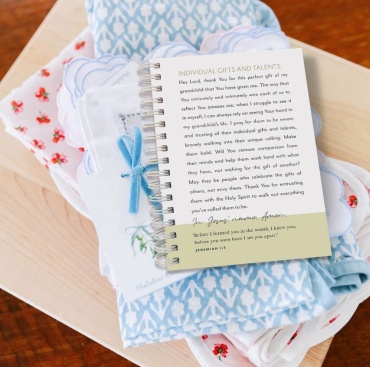 INDIVIDUAL GIFTS AND TALENTS
Hey Lord, thank You for this perfect gift of my
grandchild that You have given me. The way that
You intricately and intimately wove each of us to
reflect You amazes me; when I struggle to see it
in myself, I can always rely on seeing Your hand in
my grandchild's life. I pray for them to be aware
and trusting of their individual gifts and talents,
bravely walking into their unique calling. Make
them bold. Will You remove comparison from
their minds and help them work hard with what
they have, not wishing for the gift of another?
May they be people who celebrate the gifts of
others, not envy them. Thank You for entrusting
them with the Holy Spirit to walk out everything
you've called them to be.
In Jesus' name, Amen.
"Before I formed you in the womb, I knew you,
before you were born I set you apart."
JEREMIAH 1:5